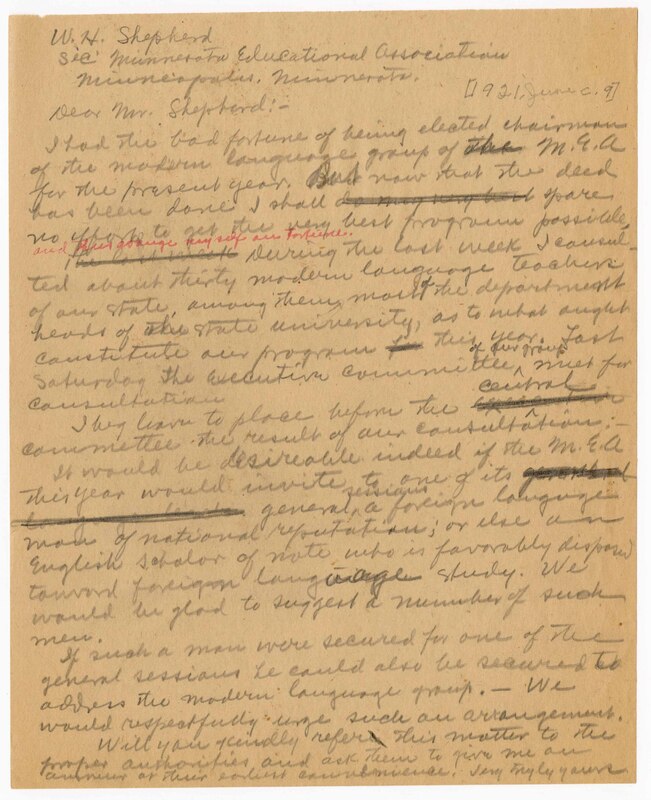 W. H. Shepherd
Sec Minnesota Educational Association
Minneapolis, Minnesota.
[1921, June c. 9]
Dear Mr. Shepherd:-
I had the bad fortune of being elected chairman
of the modern language group of the M. E. A
for the present year. But now that the deed
has been done I shall do my very best spare
no efforts to get the very best program possible,
and thus avenge myself on fortune.
During the last week I consul-
ted about thirty modern language teachers
of our state, among them most of the department
heads of the state university, as to what ought
constitute our program this year. Last
Saturday the executive committee of our group met for
consultation
I beg leave to place before the central
committee the result of our consultation:-
It would be desireable indeed if the M. E. A
this year would invite to one of its
general sessions a foreign language
man of national reputation; or else an
English scholar of note who is favorably disposed
toward foreign language study. We
would be glad to suggest a number of such
men.
If such a man were secured for one of the
general sessions he could also be secured to
address the modern language group. — We
would respectfully urge such an arrangement.
Will you kindly refer this matter to the
proper authorities and ask them to give me an
answer at their earliest convenience. Very truly yours